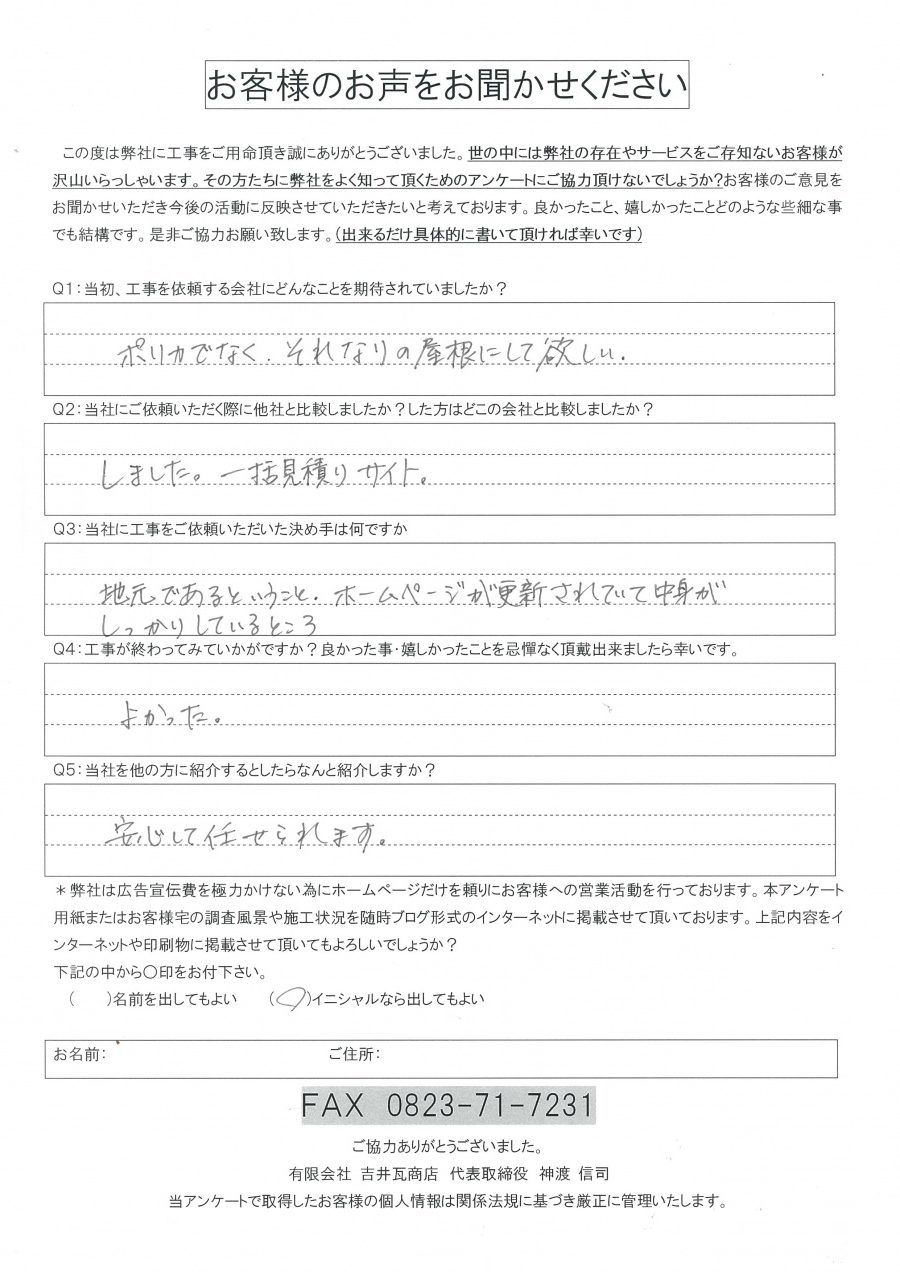 お客様のお声をお聞かせください
この度は弊社に工事をご用命頂き誠にありがとうございました。世の中には弊社の存在やサービスをご存知ないお客様が
沢山いらっしゃいます。その方たちに弊社をよく知って頂くためのアンケートにご協力頂けないでしょうか?お客様のご意見を
お聞かせいただき今後の活動に反映させていただきたいと考えております。良かったこと、嬉しかったことどのような些細な事
でも結構です。是非ご協力お願い致します。(出来るだけ具体的に書いて頂ければ幸いです)
Q1:当初、工事を依頼する会社にどんなことを期待されていましたか?
ポリカでなく、それなりの屋根にして欲しい。
Q2:当社にご依頼いただく際に他社と比較しましたか?した方はどこの会社と比較しましたか?
しました。一括見積りサイト。
Q3:当社に工事をご依頼いただいた決め手は何ですか
地元であるということ、ホームページが更新されていて中身が
しっかりしているところ
Q4:工事が終わってみていかがですか?良かった事・嬉しかったことを忌憚なく頂戴出来ましたら幸いです。
よかった。
Q5:当社を他の方に紹介するとしたらなんと紹介しますか?
安心して任せられます。
*弊社は広告宣伝費を極力かけない為にホームページだけを頼りにお客様への営業活動を行っております。本アンケート
用紙またはお客様宅の調査風景や施工状況を随時ブログ形式のインターネットに掲載させて頂いております。上記内容をイ
ンターネットや印刷物に掲載させて頂いてもよろしいでしょうか?
下記の中から〇印をお付下さい。
( )名前を出してもよい (〇)イニシャルなら出してもよい
お名前: ご住所:
FAX 0823-71-7231
ご協力ありがとうございました。
有限会社 吉井瓦商店 代表取締役 神渡 信司
当アンケートで取得したお客様の個人情報は関係法規に基づき厳正に管理いたします。